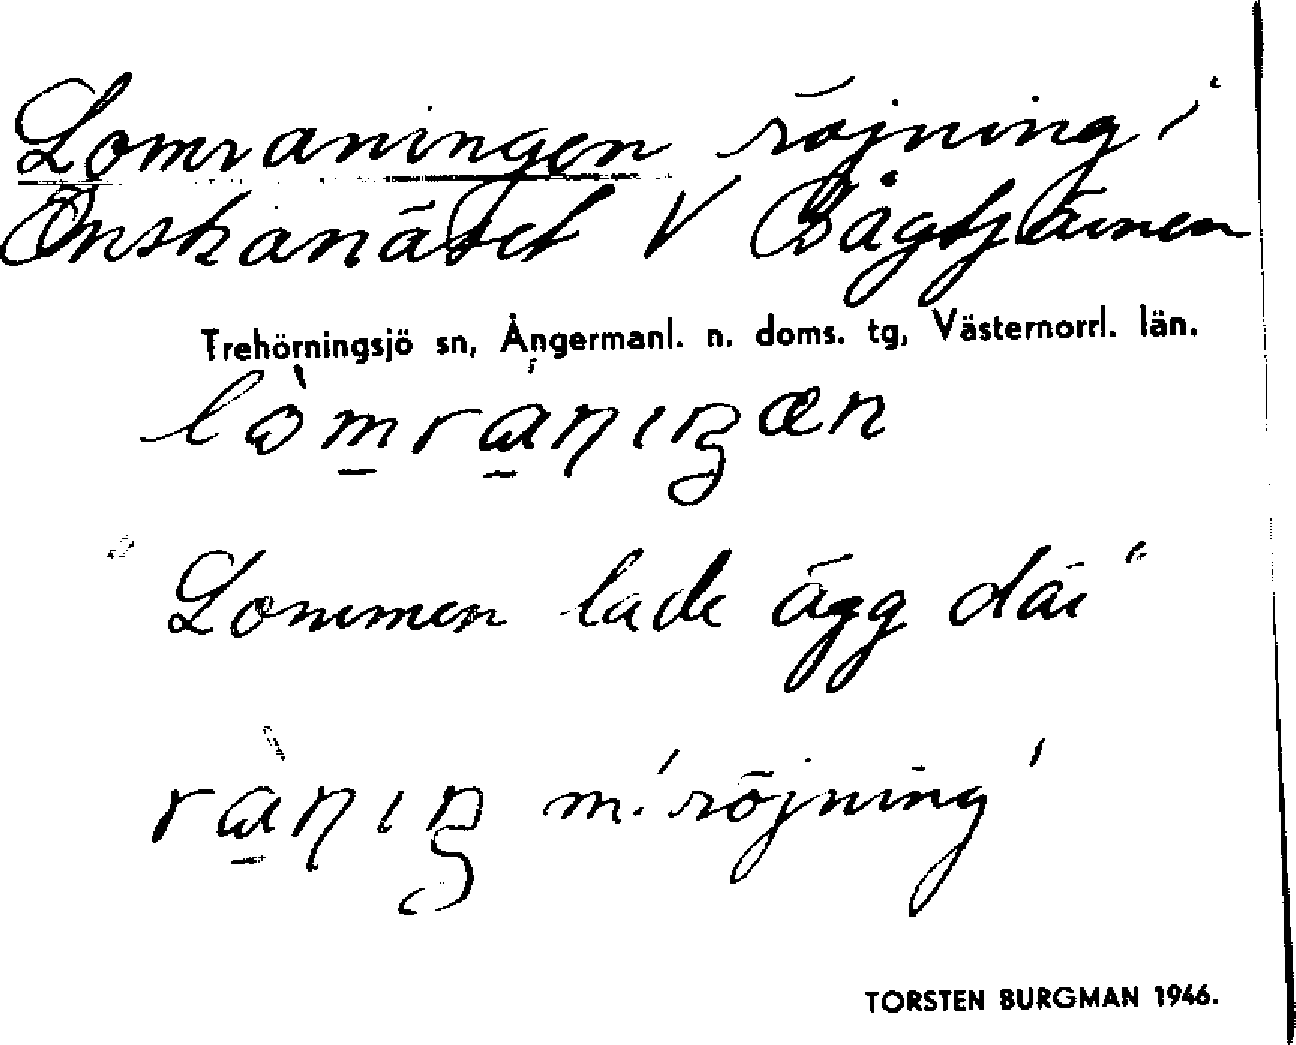 Lomraningen röjning i
Önskanäset V Bågtjärnen
Trehörningsjö sn, Ångermanl. n. doms. tg, Västernorrl. län.
"Lommen lade ägg där"
m. 'röjning'
TORSTEN BURGMAN 1946.